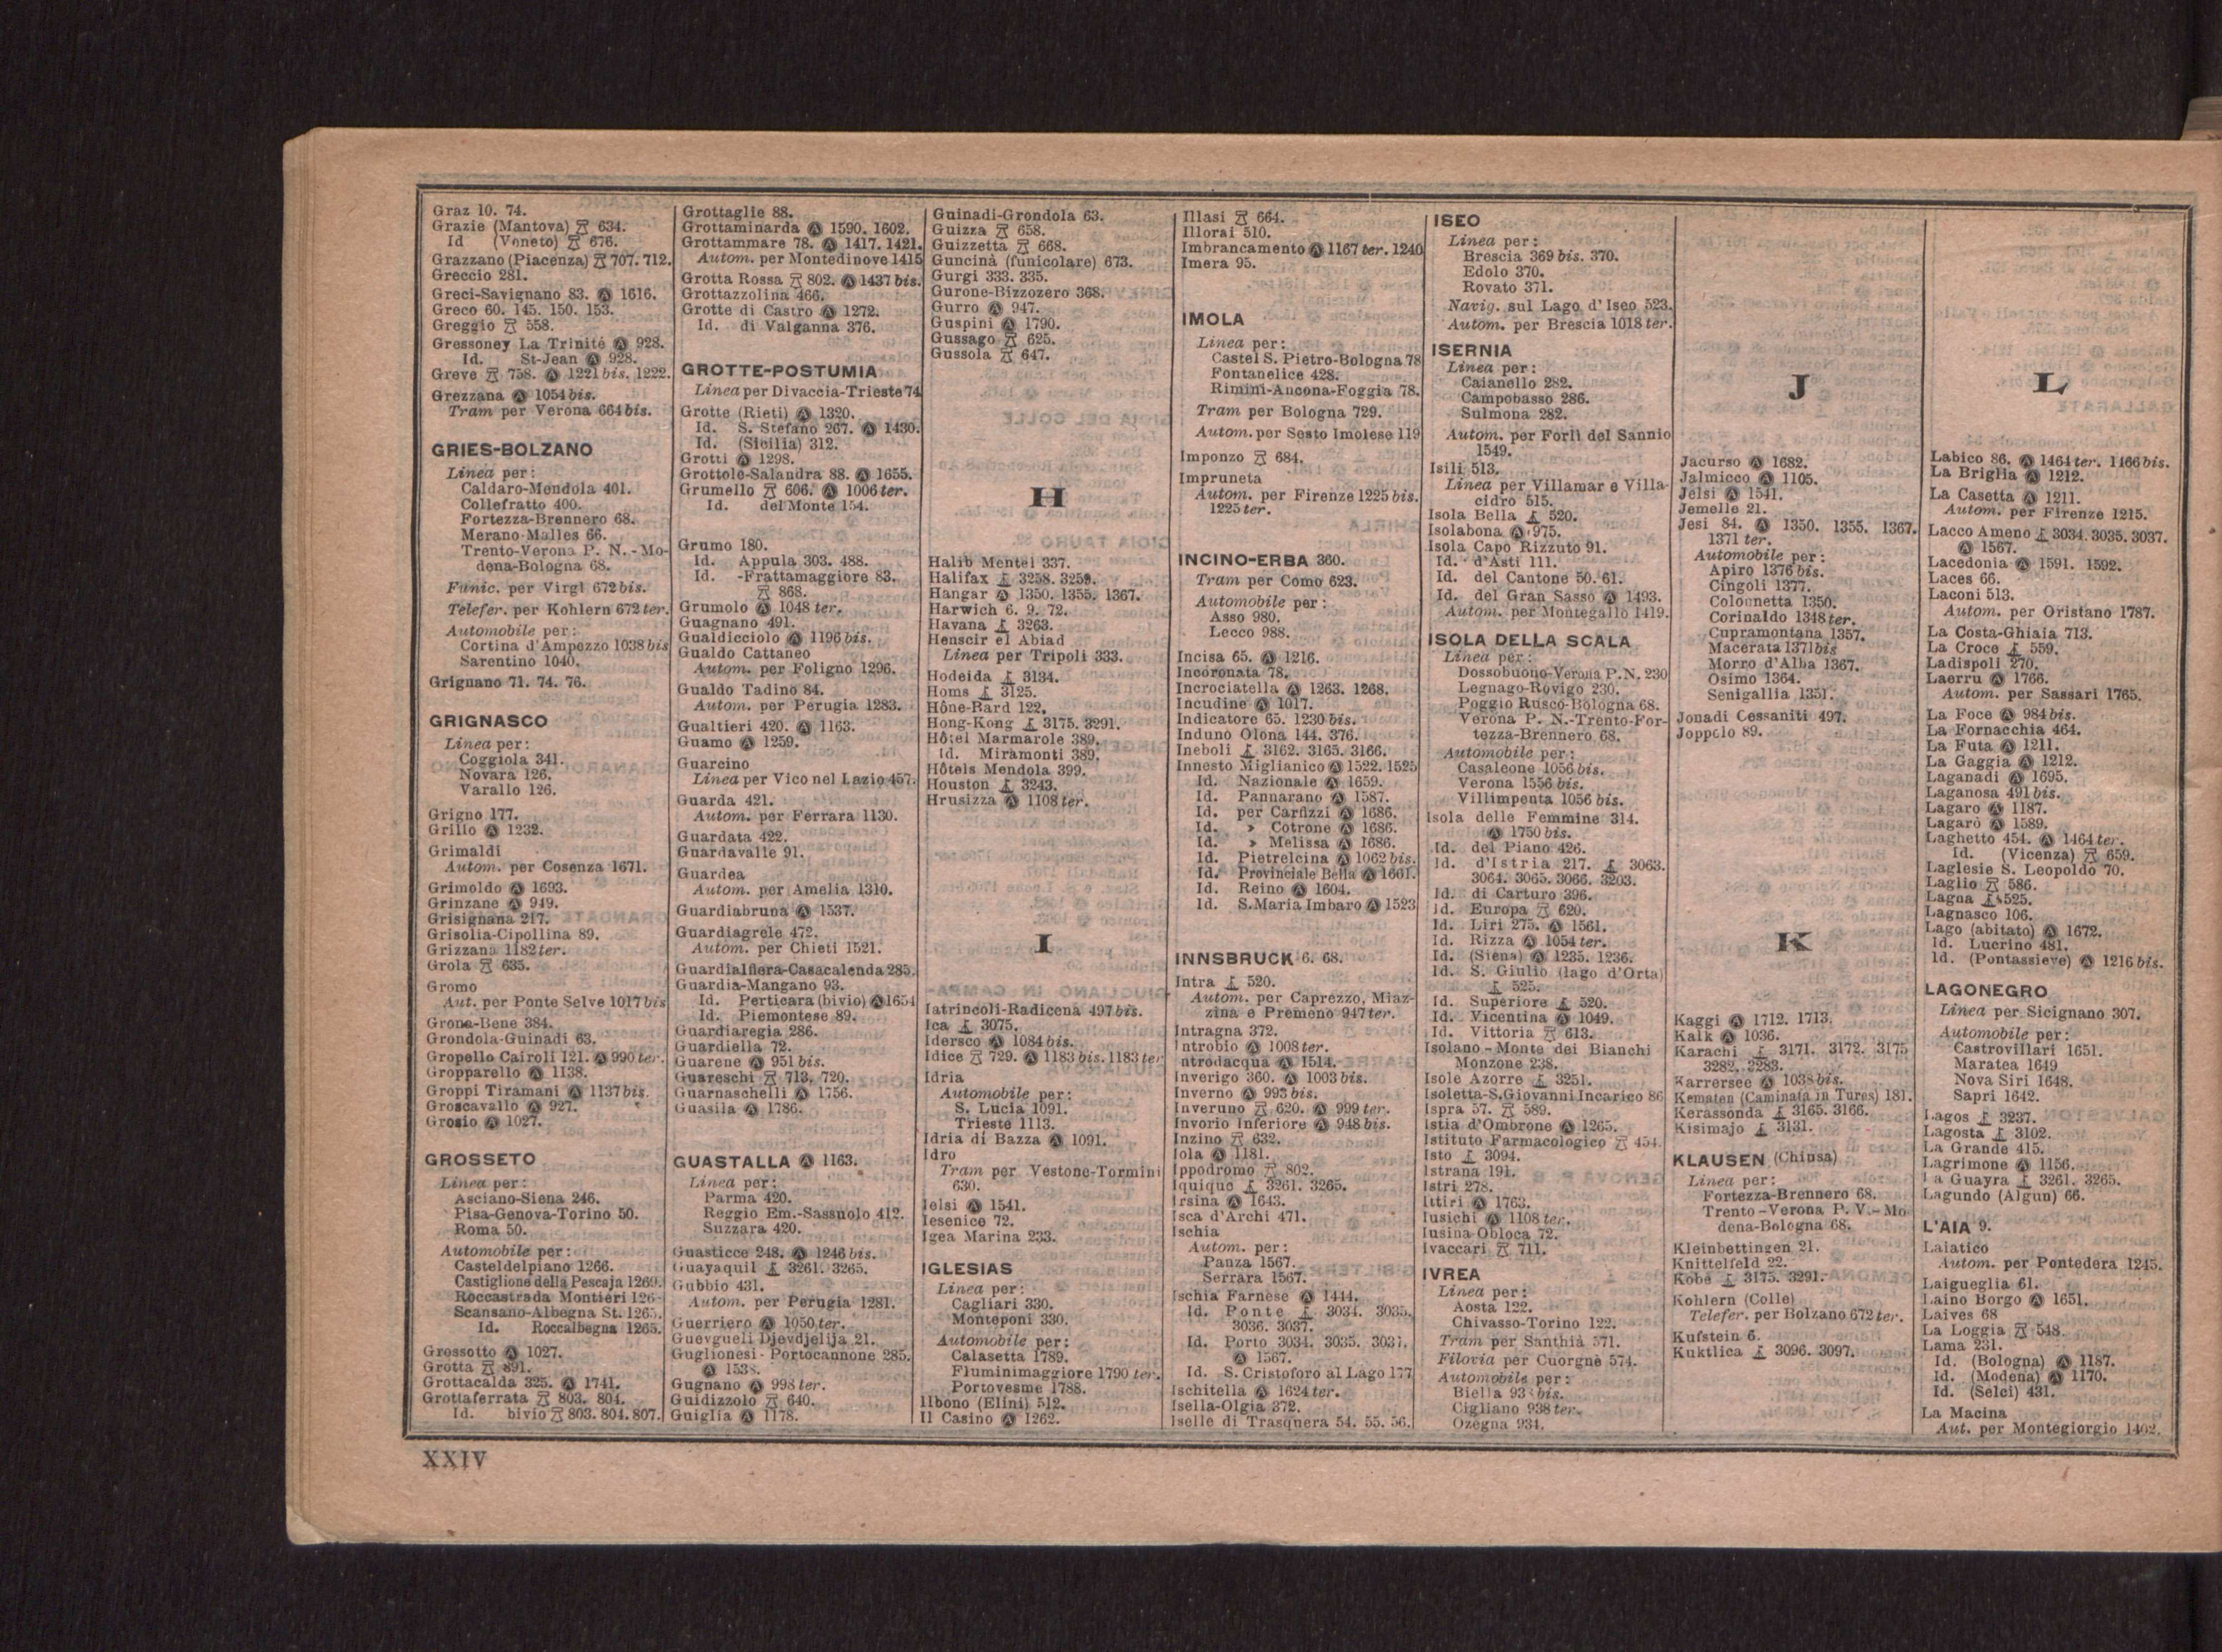 Graz 10. 74.
Grazie (Mantova) 634.
Id (Veneto) 676.
Grazzano (Piacenza) 707. 712.
Greccio 281.
Greci-Savignano 83. Ⓐ 1616.
Greco 60. 145. 150. 153.
Greggio 558.
Gressoney La Trinité Ⓐ 928.
Id. St-Jean Ⓐ 928.
Greve 758. Ⓐ 1221 bis. 1222.
Grezzana Ⓐ 1054 bis.
Tram per Verona 664 bis.
GRIES-BOLZANO
Linea per:
Caldaro-Mendola 401.
Collefratto 400.
Fortezza-Brennero 68.
Merano-Malles 66.
Trento-Verona P. N.-Mo-
dena-Bologna 68.
Funic. per Virgl 672 bis.
Telefer. per Kohlern 672 ter.
Automobile per:
Cortina d'Ampezzo 1038 bis
Sarentino 1040.
Grignano 71. 74. 76.
GRIGNASCO
Linea per:
Coggiola 341.
Novara 126.
Varallo 126.
Grigno 177.
Grillo Ⓐ 1232.
Grimaldi
Autom. per Cosenza 1671.
Grimoldo Ⓐ 1693.
Grinzane Ⓐ 949.
Grisignana 217.
Grisolia-Cipollina 89.
Grizzana 1182 ter.
Grola 635.
Gromo
Aut. per Ponte Selve 1017 bis
Grona-Bene 384.
Grondola-Guinadi 63.
Gropello Cairoli 121. Ⓐ 990 ter.
Gropparello Ⓐ 1138.
Groppi Tiramani Ⓐ 1137 bis.
Groscavallo Ⓐ 927.
Grosio Ⓐ 1027.
GROSSETO
Linea per:
Asciano-Siena 246.
Pisa-Genova-Torino 50.
Roma 50.
Automobile per:
Casteldelpiano 1266.
Castiglione della Pescaja 1269.
Roccastrada Montieri
Scansano-Albegna St.
Id. Roccalbegna 1265.
Grossotto Ⓐ 1027.
Grotta 891.
Grottacalda 325. Ⓐ 1741.
Grottaferrata 803. 804.
Id. bivio 803. 804. 807.
Grottaglie 88.
Grottaminarda Ⓐ 1590. 1602.
Grottammare 78. Ⓐ 1417. 1421.
Autom. per Montedinove 1415
Grotta Rossa 802. Ⓐ 1437 bis.
Grottazzolina 466.
Grotte di Castro Ⓐ 1272.
Id. di Valganna 376.
GROTTE-POSTUMIA
Linea per Divaccia-Trieste 74
Grotte (Rieti) Ⓐ 1320.
Id. S. Stefano 267. Ⓐ 1430.
Id. (Sicilia) 312.
Grotti Ⓐ 1298.
Grottole-Salandra 88. Ⓐ 1655.
Grumello 606. Ⓐ 1006 ter.
Id. del Monte 154.
Grumo 180.
Id. Appula 303. 488.
Id. -Frattamaggiore 83.
868.
Grumolo Ⓐ 1048 ter.
Guagnano 491.
Gualdicciolo Ⓐ 1196 bis.
Gualdo Cattaneo
Autom. per Foligno 1296.
Gualdo Tadino 84.
Autom. per Perugia 1283.
Gualtieri 420. Ⓐ 1163.
Guamo Ⓐ 1259.
Guarcino
Linea per Vico nel Lazio 457.
Guarda 421.
Autom. per Ferrara 1130.
Guardata 422.
Guardavalle 91.
Guardea
Autom. per Amelia 1310.
Guardiabruna Ⓐ 1537.
Guardiagrele 472.
Autom. per Chieti 1521.
Guardialfiera-Casacalenda 285.
Guardia-Mangano 93.
Id. Perticara (bivio) Ⓐ 1654
Id. Piemontese 89.
Guardiaregia 286.
Guardiella 72.
Guarene Ⓐ 951 bis.
Guareschi 713. 720.
Guarnaschelli Ⓐ 1756.
Guasila Ⓐ 1786.
GUASTALLA Ⓐ 1163.
Linea per:
Parma 420.
Reggio Em.-Sassuolo 412.
Suzzara 420.
Guasticce 248. Ⓐ 1246 bis.
Guayaquil 3261. 3265.
Gubbio 431.
Autom. per Perugia 1281.
Guerriero Ⓐ 1050 ter.
Guevgueli Djevdjelija 21.
Guglionesi-Portocannone 285.
Ⓐ 1538.
Gugnano Ⓐ 998 ter.
Guidizzolo 640.
Guiglia Ⓐ 1178.
Guinadi-Grondola 63.
Guizza 658.
Guizzetta 668.
Guncinà (funicolare) 673.
Gurgi 333. 335.
Gurone-Bizzozero 368.
Gurro Ⓐ 947.
Guspini Ⓐ 1790.
Gussago 625.
Gussola 647.
H
Halib Mentei 337.
Halifax 3258. 3259.
Hangar Ⓐ 1350. 1355. 1367.
Harwich 6. 9. 72.
Havana 3263.
Henscir el Abiad
Linea per Tripoli 333.
Hodeida 3134.
Homs 3125.
Hône-Bard 122.
Hong-Kong 3175. 3291.
Hôtel Marmarole 389.
Id. Miramonti 389.
Hôtels Mendola 399.
Houston 3243.
Hrusizza Ⓐ 1108 ter.
I
Iatrincoli-Radicena 497 bis.
Ica 3075.
Idersco Ⓐ 1084 bis.
Idice 729. Ⓐ 1183 bis. 1183 ter
Idria
Automobile per:
S. Lucia 1091.
Trieste 1113.
Idria di Bazza Ⓐ 1091.
Idro
Tram per Vestone-Tormini
630.
Ielsi Ⓐ 1541.
Iesenice 72.
Igea Marina 233.
IGLESIAS
Linea per:
Cagliari 330.
Monteponi 330.
Automobile per:
Calasetta 1789.
Fluminimaggiore 1790 ter.
Portovesme 1788.
Ilbono (Elini) 512.
Il Casino Ⓐ 1262.
Illasi 664.
Illorai 510.
Imbrancamento Ⓐ 1167 ter. 1240
Imera 95.
IMOLA
Linea per:
Castel S. Pietro-Bologna 78
Fontanelice 428.
Rimini-Ancona-Foggia 78.
Tram per Bologna 729.
Autom. per Sesto Imolese 119
Imponzo 684.
Impruneta
Autom. per Firenze 1225 bis.
1225 ter.
INCINO-ERBA 360.
Tram per Como 623.
Automobile per:
Asso 980.
Lecco 988.
Incisa 65. Ⓐ 1216.
Incoronata 78.
Incrociatella Ⓐ 1263. 1268.
Incudine Ⓐ 1017.
Indicatore 65. 1230 bis.
Induno Olona 144. 376.
Ineboli 3162. 3165. 3166.
Innesto Miglianico Ⓐ 1522. 1525
Id. Nazionale Ⓐ 1659.
Id. Pannarano Ⓐ 1587.
Id. per Carfizzi Ⓐ 1686.
Id. » Cotrone Ⓐ 1686.
Id. » Melissa Ⓐ 1686.
Id. Pietrelcina Ⓐ 1062 bis.
Id. Provinciale Bella Ⓐ 1661.
Id. Reino Ⓐ 1604.
Id. S. Maria Imbaro Ⓐ 1523
INNSBRUCK 6. 68.
Intra 520.
Autom. per Caprezzo, Miaz-
zina e Premeno 947 ter.
Intragna 372.
Introbio Ⓐ 1008 ter.
ntrodacqua Ⓐ 1514.
Inverigo 360. Ⓐ 1003 bis.
Inverno Ⓐ 993 bis.
Inveruno 620. Ⓐ 999 ter.
Invorio Inferiore Ⓐ 948 bis.
Inzino 632.
Iola Ⓐ 1181.
Ippodromo 802.
Iquique 3261. 3265.
Irsina Ⓐ 1643.
Isca d'Archi 471.
Ischia
Autom. per:
Panza 1567.
Serrara 1567.
Ischia Farnese Ⓐ 1444.
Id. Ponte 3034. 3035.
3036. 3037.
Id. Porto 3034. 3035. 3037.
Ⓐ 1567.
Id. S. Cristoforo al Lago 177
Ischitella Ⓐ 1624 ter.
Isella-Olgia 372.
Iselle di Trasquera 54. 55. 56.
ISEO
Linea per:
Brescia 369 bis. 370.
Edolo 370.
Rovato 371.
Navig. sul Lago d'Iseo 523.
Autom. per Brescia 1018 ter.
ISERNIA
Linea per:
Caianello 282.
Campobasso 286.
Sulmona 282.
Autom. per Forlì del Sannio
1549.
Isili 513.
Linea per Villamar e Villa-
cidro 515.
Isola Bella 520.
Isolabona Ⓐ 975.
Isola Capo Rizzuto 91.
Id. d'Asti 111.
Id. del Cantone 50. 61.
Id. del Gran Sasso Ⓐ 1493.
Autom. per Montegallo 1419.
ISOLA DELLA SCALA
Linea per:
Dossobuono-Verona P.N. 230
Legnago-Rovigo 230.
Poggio Rusco-Bologna 68.
Verona P. N.-Trento-For-
tezza-Brennero 68.
Automobile per:
Casaleone 1056 bis.
Verona 1556 bis.
Villimpenta 1056 bis.
Isola delle Femmine 314.
Ⓐ 1750 bis.
Id. del Piano 426.
Id. d'Istria 217. 3063.
3064. 3065. 3066. 3203.
Id. di Carturo 396.
Id. Europa 620.
Id. Liri 275. Ⓐ 1561.
Id. Rizza Ⓐ 1054 ter.
Id. (Siena) Ⓐ 1235. 1236.
Id. S. Giulio (lago d'Orta)
525.
Id. Superiore 520.
Id. Vicentina Ⓐ 1049.
Id. Vittoria 613.
Isolano-Monte dei Bianchi
Monzone 238.
Isole Azorre 3251.
Isoletta-S.Giovanni Incarico 86
Ispra 57. 589.
Istia d'Ombrone Ⓐ 1265.
Istituto Farmacologico 454.
Isto 3094.
Istrana 191.
Istri 278.
Ittiri Ⓐ 1763.
Iusichi Ⓐ 1108 ter.
Iusina Obloca 72.
Ivaccari 711.
IVREA
Linea per:
Aosta 122.
Chivasso-Torino 122.
Tram per Santhià 571.
Filovia per Cuorgnè 574.
Automobile per:
Biella bis.
Cigliano 938 ter.
Ozegna 934.
J
Jacurso Ⓐ 1682.
Jalmicco Ⓐ 1105.
Jelsi Ⓐ 1541.
Jemelle 21.
Jesi 84. Ⓐ 1350. 1355. 1367.
1371 ter.
Automobile per:
Apiro 1376 bis.
Cingoli 1377.
Colonnetta 1350.
Corinaldo 1348 ter.
Cupramontana 1357.
Macerata 1371 bis
Morro d'Alba 1367.
Osimo 1364.
Senigallia 1351.
Jonadi Cessaniti 497.
Joppolo 89.
K
Kaggi Ⓐ 1712. 1713.
Kalk Ⓐ 1036.
Karachi 3171. 3172. 3175
3282. 3283.
Karrersee Ⓐ 1038 bis.
Kematen (Caminata in Tures) 181.
Kerassonda 3165. 3166.
Kisimajo 3131.
KLAUSEN (Chiusa)
Linea per:
Fortezza-Brennero 68.
Trento-Verona P. V.-Mo
dena-Bologna 68.
Kleinbettingen 21.
Knittelfeld 22.
Kobe 3175. 3291.
Kohlern (Colle)
Telefer. per Bolzano 672 ter.
Kufstein 6.
Kuktlica 3096. 3097.
L
Labico 86. Ⓐ 1464 ter. 1466 bis.
La Briglia Ⓐ 1212.
La Casetta Ⓐ 1211.
Autom. per Firenze 1215.
Lacco Ameno 3034. 3035. 3037.
Ⓐ 1567.
Lacedonia Ⓐ 1591. 1592.
Laces 66.
Laconi 513.
Autom. per Oristano 1787.
La Costa-Ghiaia 713.
La Croce 559.
Ladispoli 270.
Laerru Ⓐ 1766.
Autom. per Sassari 1765.
La Foce Ⓐ 984 bis.
La Fornacchia 464.
La Futa Ⓐ 1211.
La Gaggia Ⓐ 1212.
Laganadi Ⓐ 1695.
Laganosa 491 bis.
Lagaro Ⓐ 1187.
Lagarò Ⓐ 1589.
Laghetto 454. Ⓐ 1464 ter.
Id. (Vicenza) 659.
Laglesie S. Leopoldo 70.
Laglio 586.
Lagna 525.
Lagnasco 106.
Lago (abitato) Ⓐ 1672.
Id. Lucrino 481.
Id. (Pontassieve) Ⓐ 1216 bis.
LAGONEGRO
Linea per Sicignano 307.
Automobile per:
Castrovillari 1651.
Maratea 1649
Nova Siri 1648.
Sapri 1642.
Lagos 3237.
Lagosta 3102.
La Grande 415.
Lagrimone Ⓐ 1156.
La Guayra 3261. 3265.
Lagundo (Algun) 66.
L'AIA 9.
Laiatico
Autom. per Pontedera 1245.
Laigueglia 61.
Laino Borgo Ⓐ 1651.
Laives 68
La Loggia 548.
Lama 231.
Id. (Bologna) Ⓐ 1187.
Id. (Modena) Ⓐ 1170.
Id. (Selci) 431.
La Macina
Aut. per Montegiorgio 1402.
XXIV